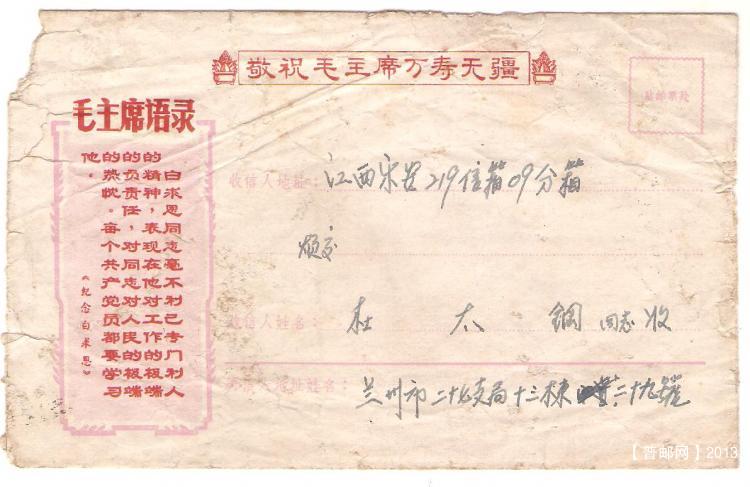 敬祝毛主席万寿无疆
贴邮票处
毛主席语录
白求恩同志毫不利己专门利人
的精神，表现在他对工作的极端
的负责任，对同志对人民的极端
的热忱。每个共产党员都要学习
他。
《纪念白求恩》
收信人地址：江西 219信箱09分箱
烦交
收信人姓名：杜太钢同志收
地址姓名：兰州市二十 支局十三栋 二十九号
【普邮网】2013